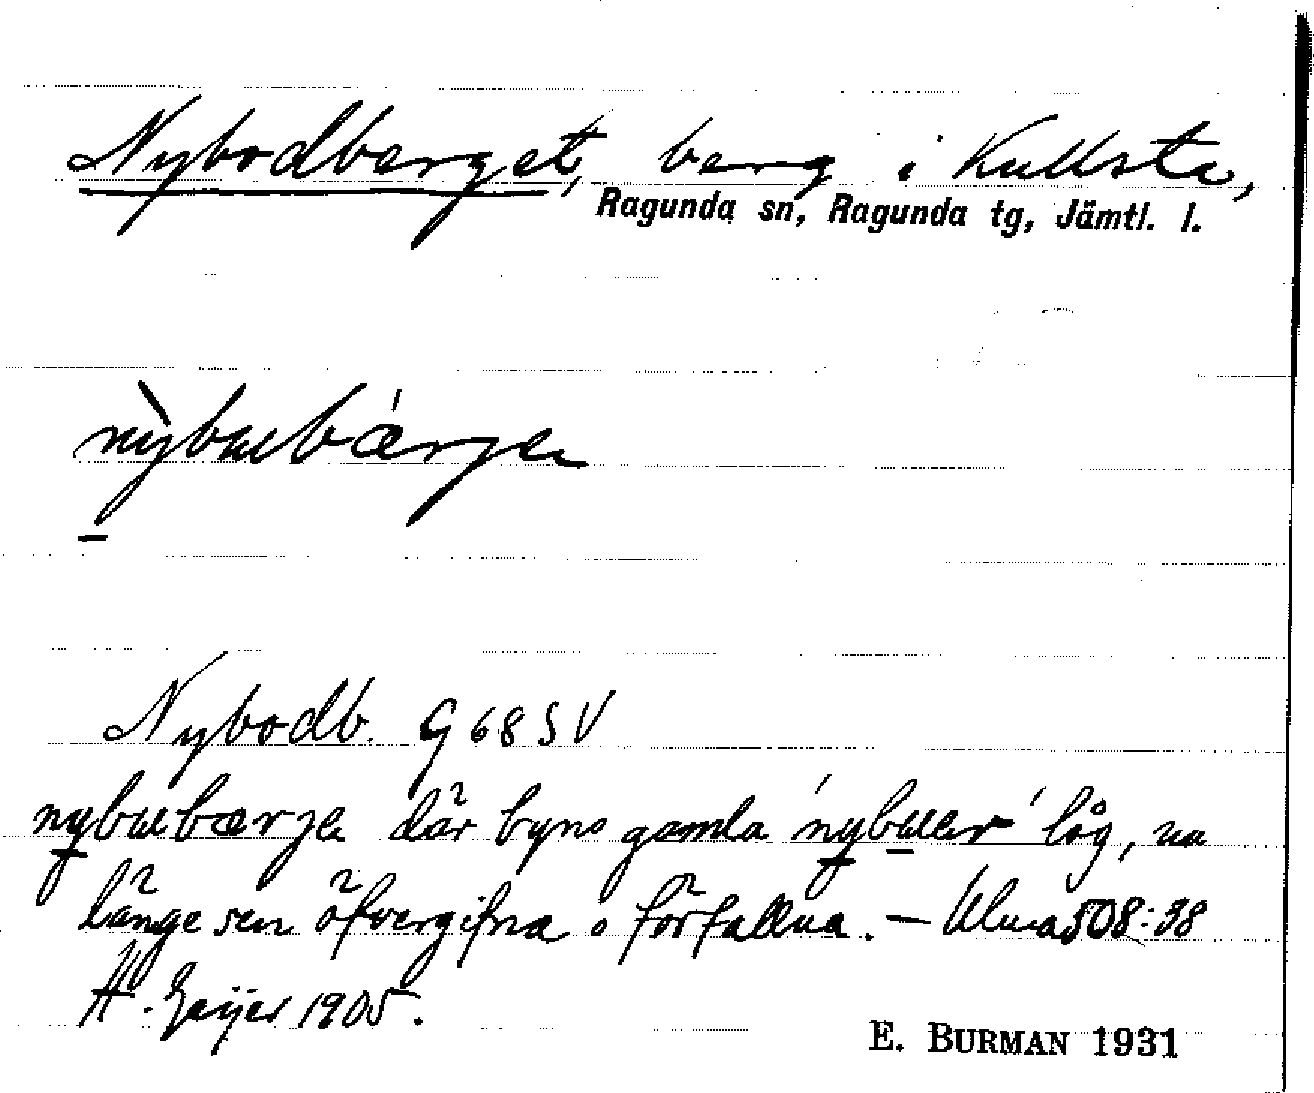 Nybodberget, berg i Kullsta,
Ragunda sn, Ragunda tg, Jämtl. l.
nỳbuubǽrjen
Nybodb. G 68 S V
nybuubærjen där byns gamla 'nybuuer' låg, nu
länge sen öfvergifna o förfallna. – Ulma 508:38
H. Geijer 1905.
E. BURMAN 1931